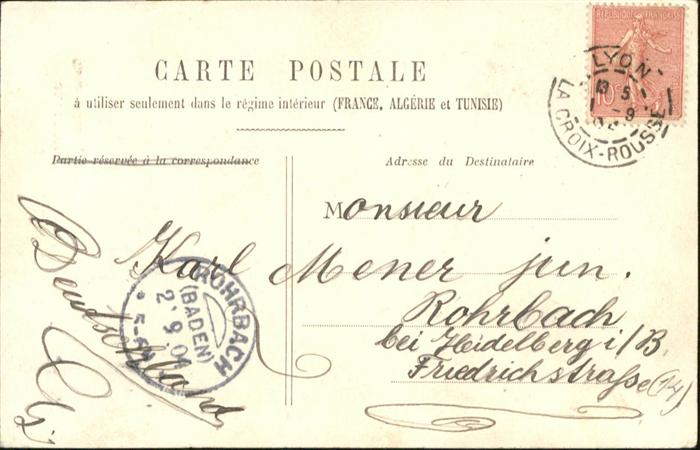 RÉPUBLIQUE FRANÇAISE
10c
LYON
5
9
04
LA CROIX-ROUSSE
CARTE POSTALE
à utiliser seulement dans le régime intérieur (FRANCE, ALGÉRIE et TUNISIE)
Partie réservée à la correspondance
Adresse du Destinataire
Monsieur
Karl Mener jun.
Rohrbach
bei Heidelberg i/B
Friedrichstraße (14)
Deutschland
ROHRBACH
(BADEN)
2.9.04